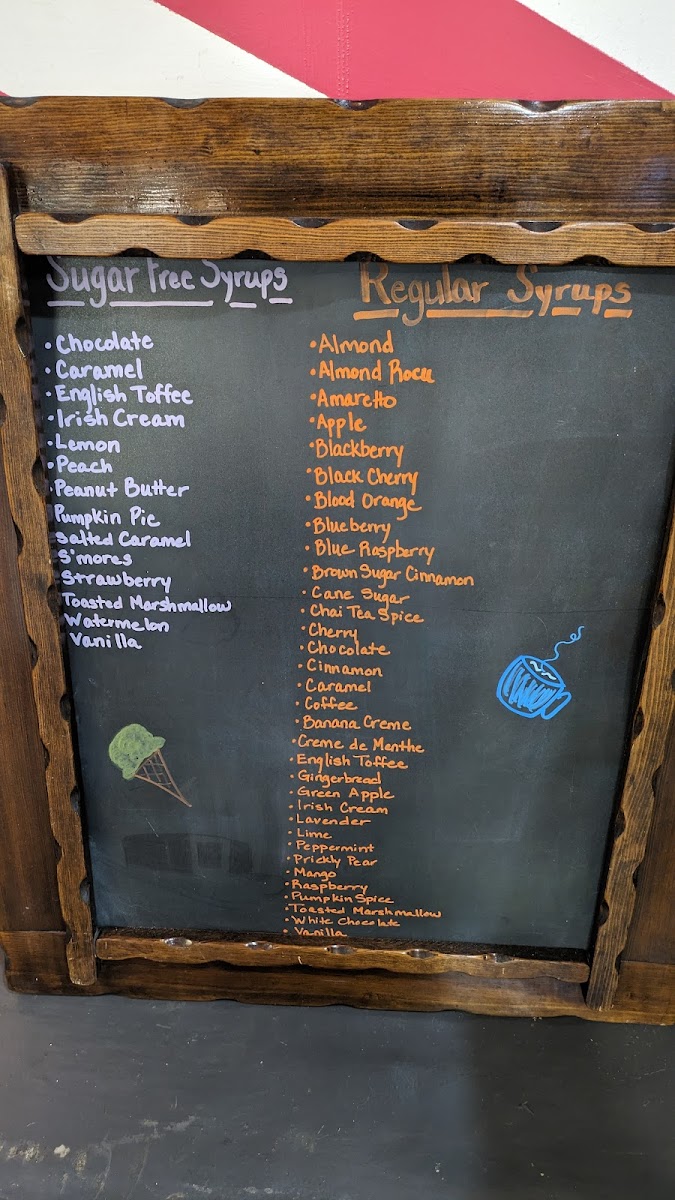 Sugar Free Syrups
• Chocolate
• Caramel
• English Toffee
• Irish Cream
• Lemon
• Peach
• Peanut Butter
Pumpkin Pie
Salted Caramel
S'mores
• Strawberry
Toasted Marshmallow
Watermelon
Vanilla
Regular Syrups
• Almond
• Almond Roca
• Amaretto
• Apple
• Blackberry
• Black Cherry
• Blood Orange
• Blueberry
• Blue Raspberry
• Brown Sugar Cinnamon
• Cane Sugar
• Chai Tea Spice
• Cherry
• Chocolate
• Cinnamon
• Caramel
• Coffee
• Banana Creme
• Creme de Menthe
• English Toffee
• Gingerbread
• Green Apple
• Irish Cream
• Lavender
• Lime
• Peppermint
• Prickly Pear
• Mango
• Raspberry
• Pumpkin Spice
• Toasted Marshmallow
• White Chocolate
• Vanilla